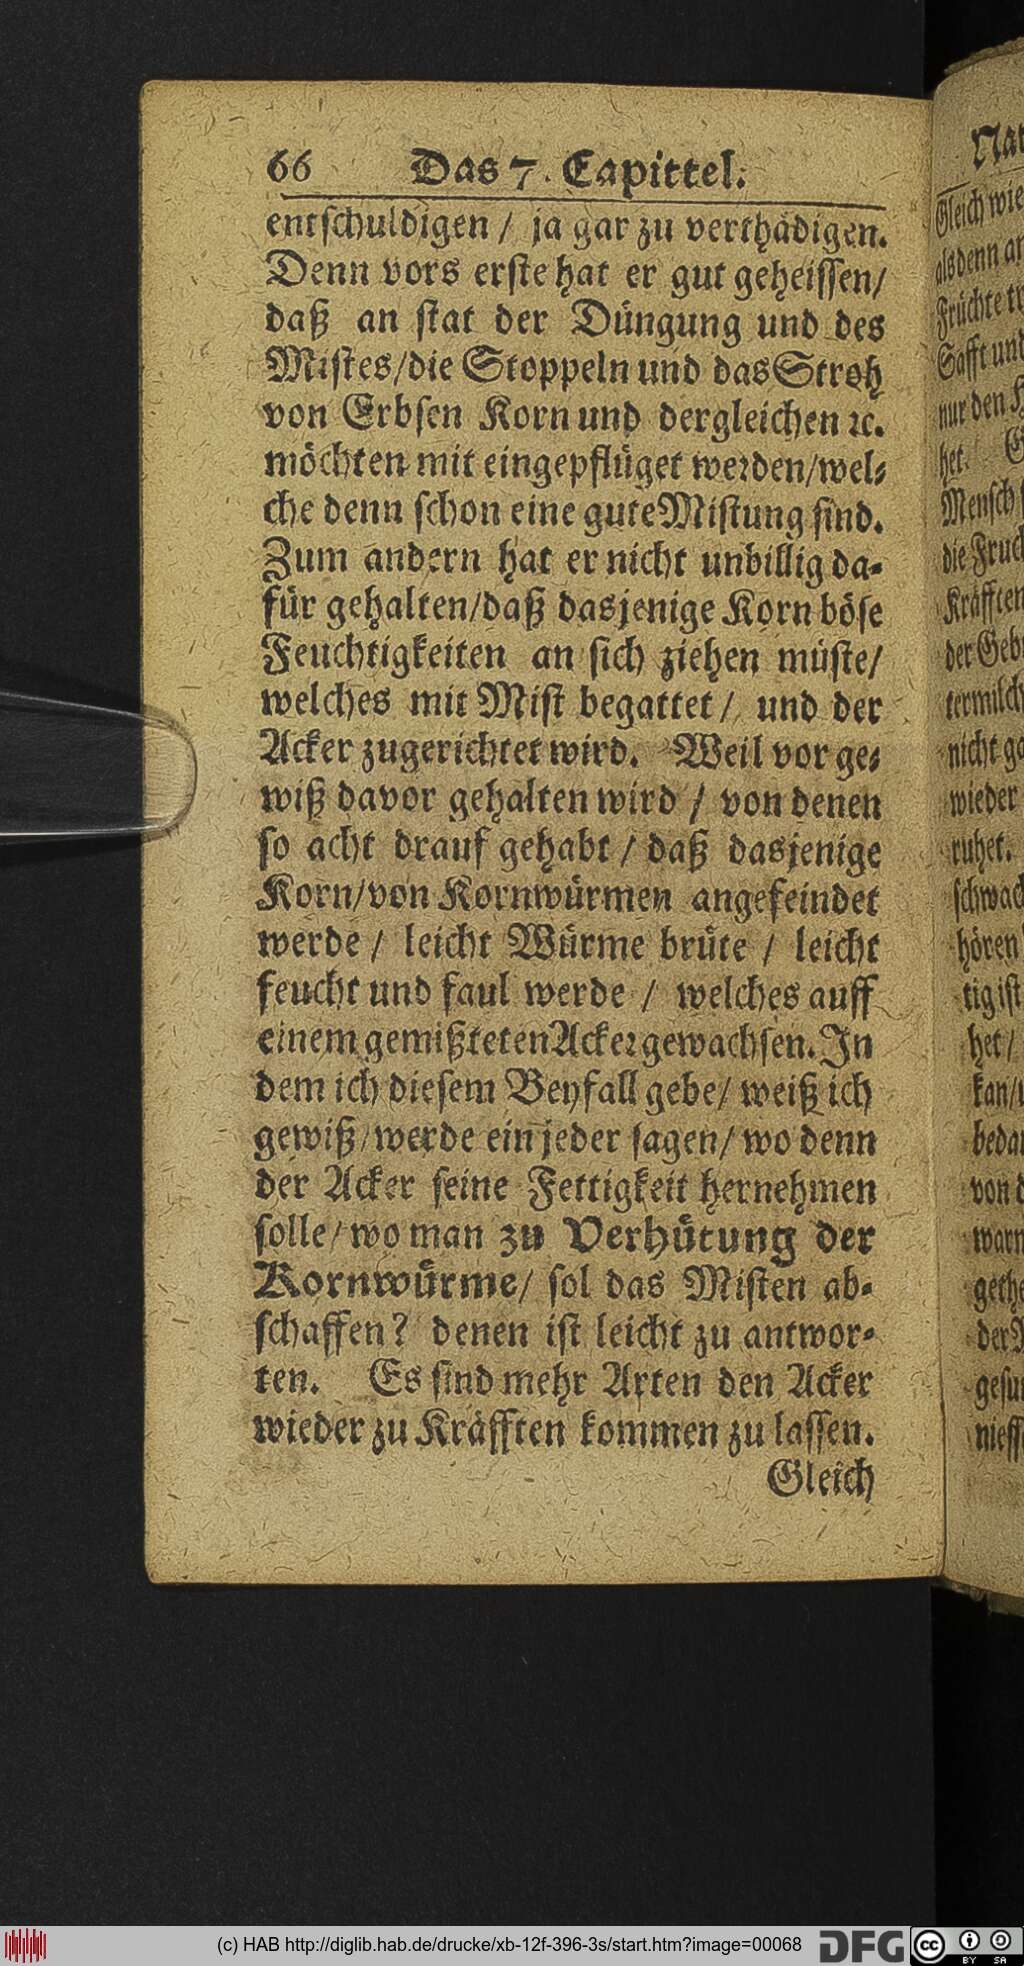 66 Das 7. Capittel.
entschuldigen / ja gar zu verthädigen.
Denn vors erste hat er gut geheissen/
daß an stat der Düngung und des
Mistes/die Stoppeln und das Stroh
von Erbsen Korn und dergleichen ꝛc.
möchten mit eingepflüget werden/wel-
che denn schon eine gute Mistung sind.
Zum andern hat er nicht unbillig da-
für gehalten/daß dasjenige Korn böse
Feuchtigkeiten an sich ziehen müste/
welches mit Mist begattet / und der
Acker zugerichtet wird. Weil vor ge-
wiß davor gehalten wird / von denen
so acht drauf gehabt / daß dasjenige
Korn/von Kornwürmen angefeindet
werde / leicht Würme brüte / leicht
feucht und faul werde / welches auff
einem gemißteten Acker gewachsen. In
dem ich diesem Beyfall gebe/ weiß ich
gewiß/werde ein jeder sagen/ wo denn
der Acker seine Fettigkeit hernehmen
solle/wo man zu Verhütung der
Kornwürme/ sol das Misten ab-
schaffen? denen ist leicht zu antwor-
ten. Es sind mehr Arten den Acker
wieder zu Kräfften kommen zu lassen.
Gleich
Gleich wie
als denn
Früchte
Safft und
nur den
het.
Mensch
die
Kräfften
der
nicht
wieder
ruhet.
hören
tig ist
het /
kan/
von
(c) HAB http://diglib.hab.de/drucke/xb-12f-396-3s/start.htm?image=00068
DFG
cc BY SA